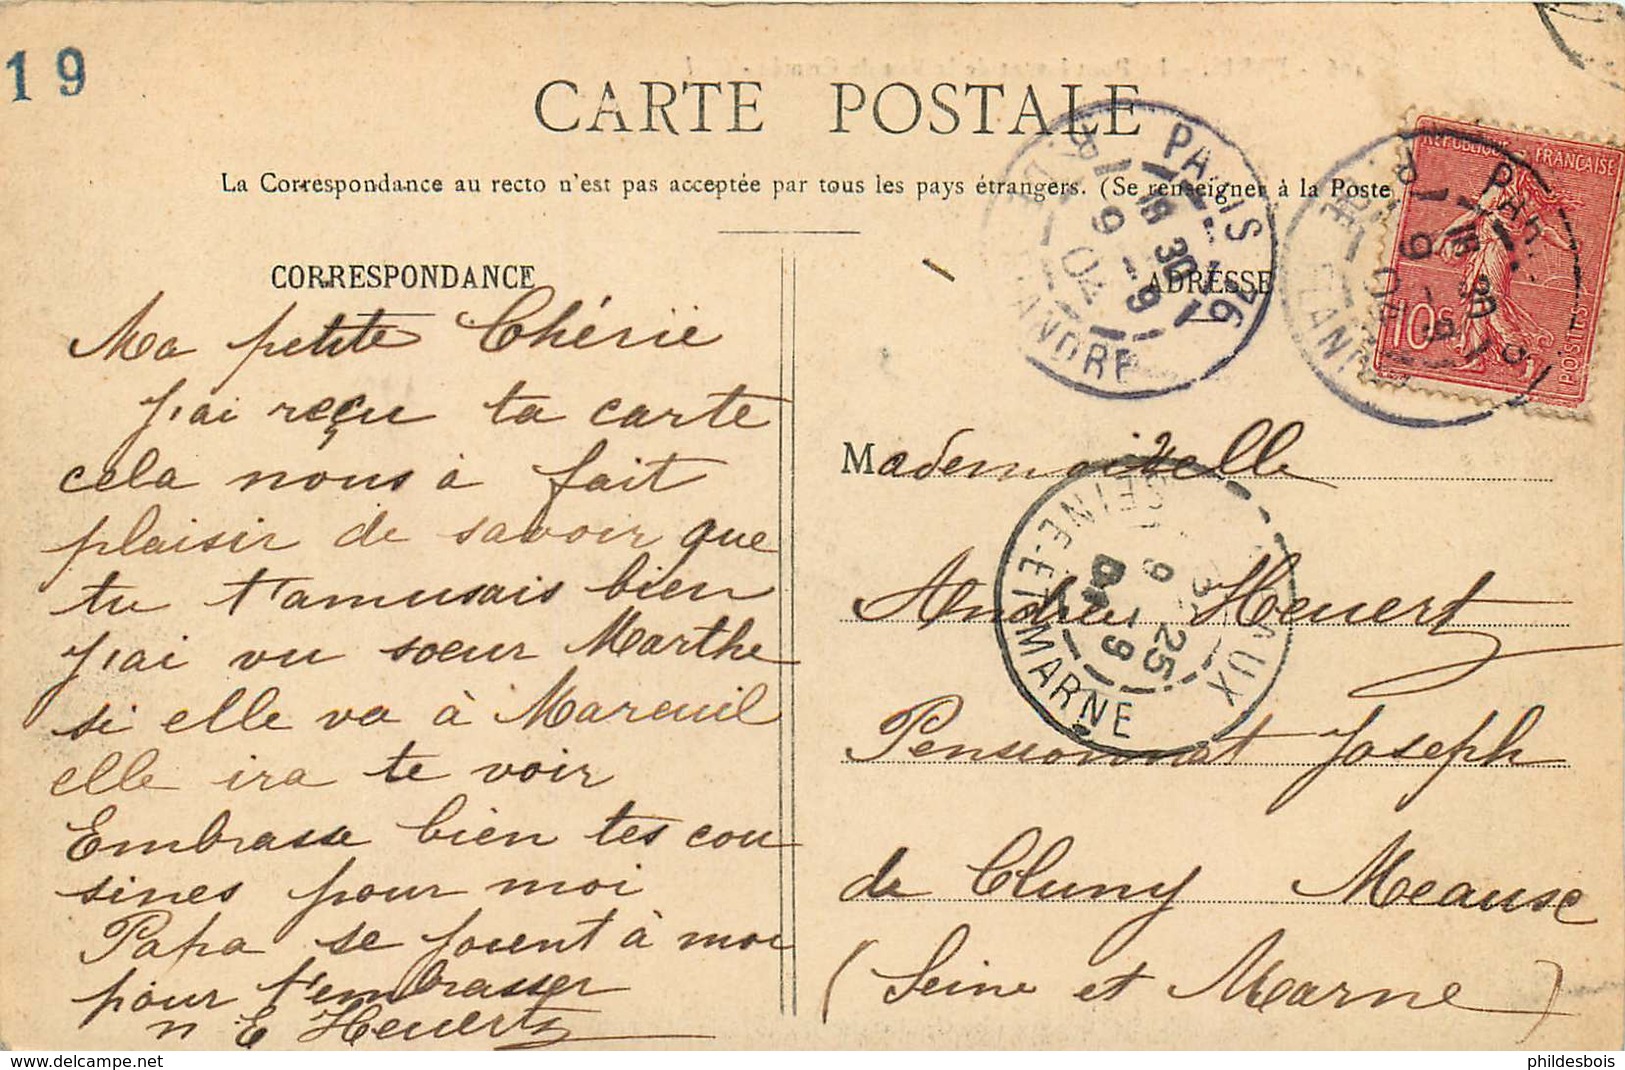 19
CARTE POSTALE
La Correspondance au recto n'est pas acceptée par tous les pays étrangers. (Se renseigner à la Poste
CORRESPONDANCE
Ma petite Chérie
J'ai reçu ta carte
cela nous à fait
plaisir de savoir que
tu t'amusais bien
J'ai vu soeur Marthe
si elle va à Mareuil
elle ira te voir
Embrasse bien tes cou
sines pour moi
Papa se joient à moi
pour t'embrasser
E Heuertz
ADRESSE
Mademoiselle
Andrée Heuertz
Pensionnat Joseph
de Cluny Meause
(Seine et Marne)
REPUBLIQUE FRANÇAISE
10c
POSTES
PARIS 76
18 30
9 - 9
04
SEINE-ET-MARNE
9 25
9 - 9
04
delcampe.net
phildesbois